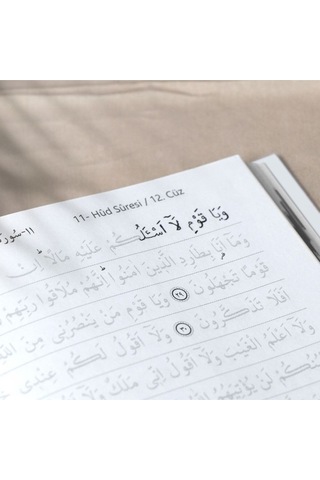 11- Hûd Sûresi / 12. Cüz
١١-سُورَ
وَيَا قَوْمِ لَٓا اَسْـَٔلُكُمْ عَلَيْهِ مَالًا اِنْ
وَمَٓا اَنَا۬ بِطَارِدِ الَّذ۪ينَ اٰمَنُوا اِنَّهُمْ مُلَاقُوا رَبِّهِمْ
قَوْمًا تَجْهَلُونَ ﴿٢٩﴾ وَيَا قَوْمِ مَنْ يَنْصُرُن۪ي مِنَ اللّٰهِ
اَفَلَا تَذَكَّرُونَ ﴿٣٠﴾ وَلَٓا اَقُولُ لَكُمْ عِنْد۪ي
وَلَٓا اَعْلَمُ الْغَيْبَ وَلَٓا اَقُولُ اِنّ۪ي مَلَكٌ وَلَٓا
لَنْ يُؤْتِيَهُمُ